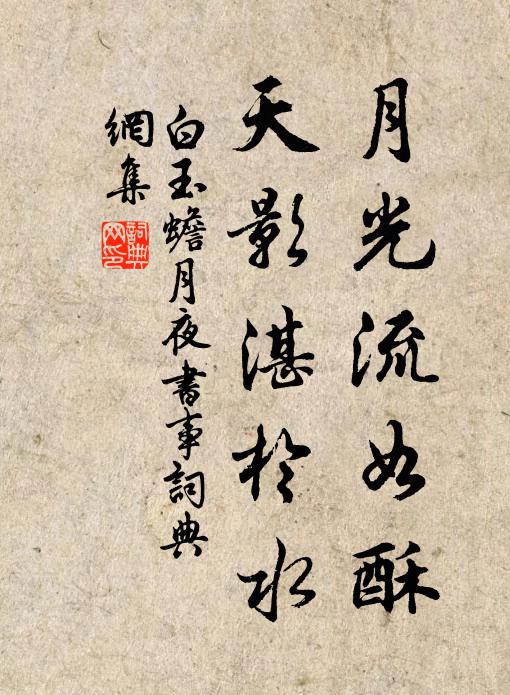 月光流如酥
天影湛於水
白玉蟾月夜書事詞典
網集
詞典
网印